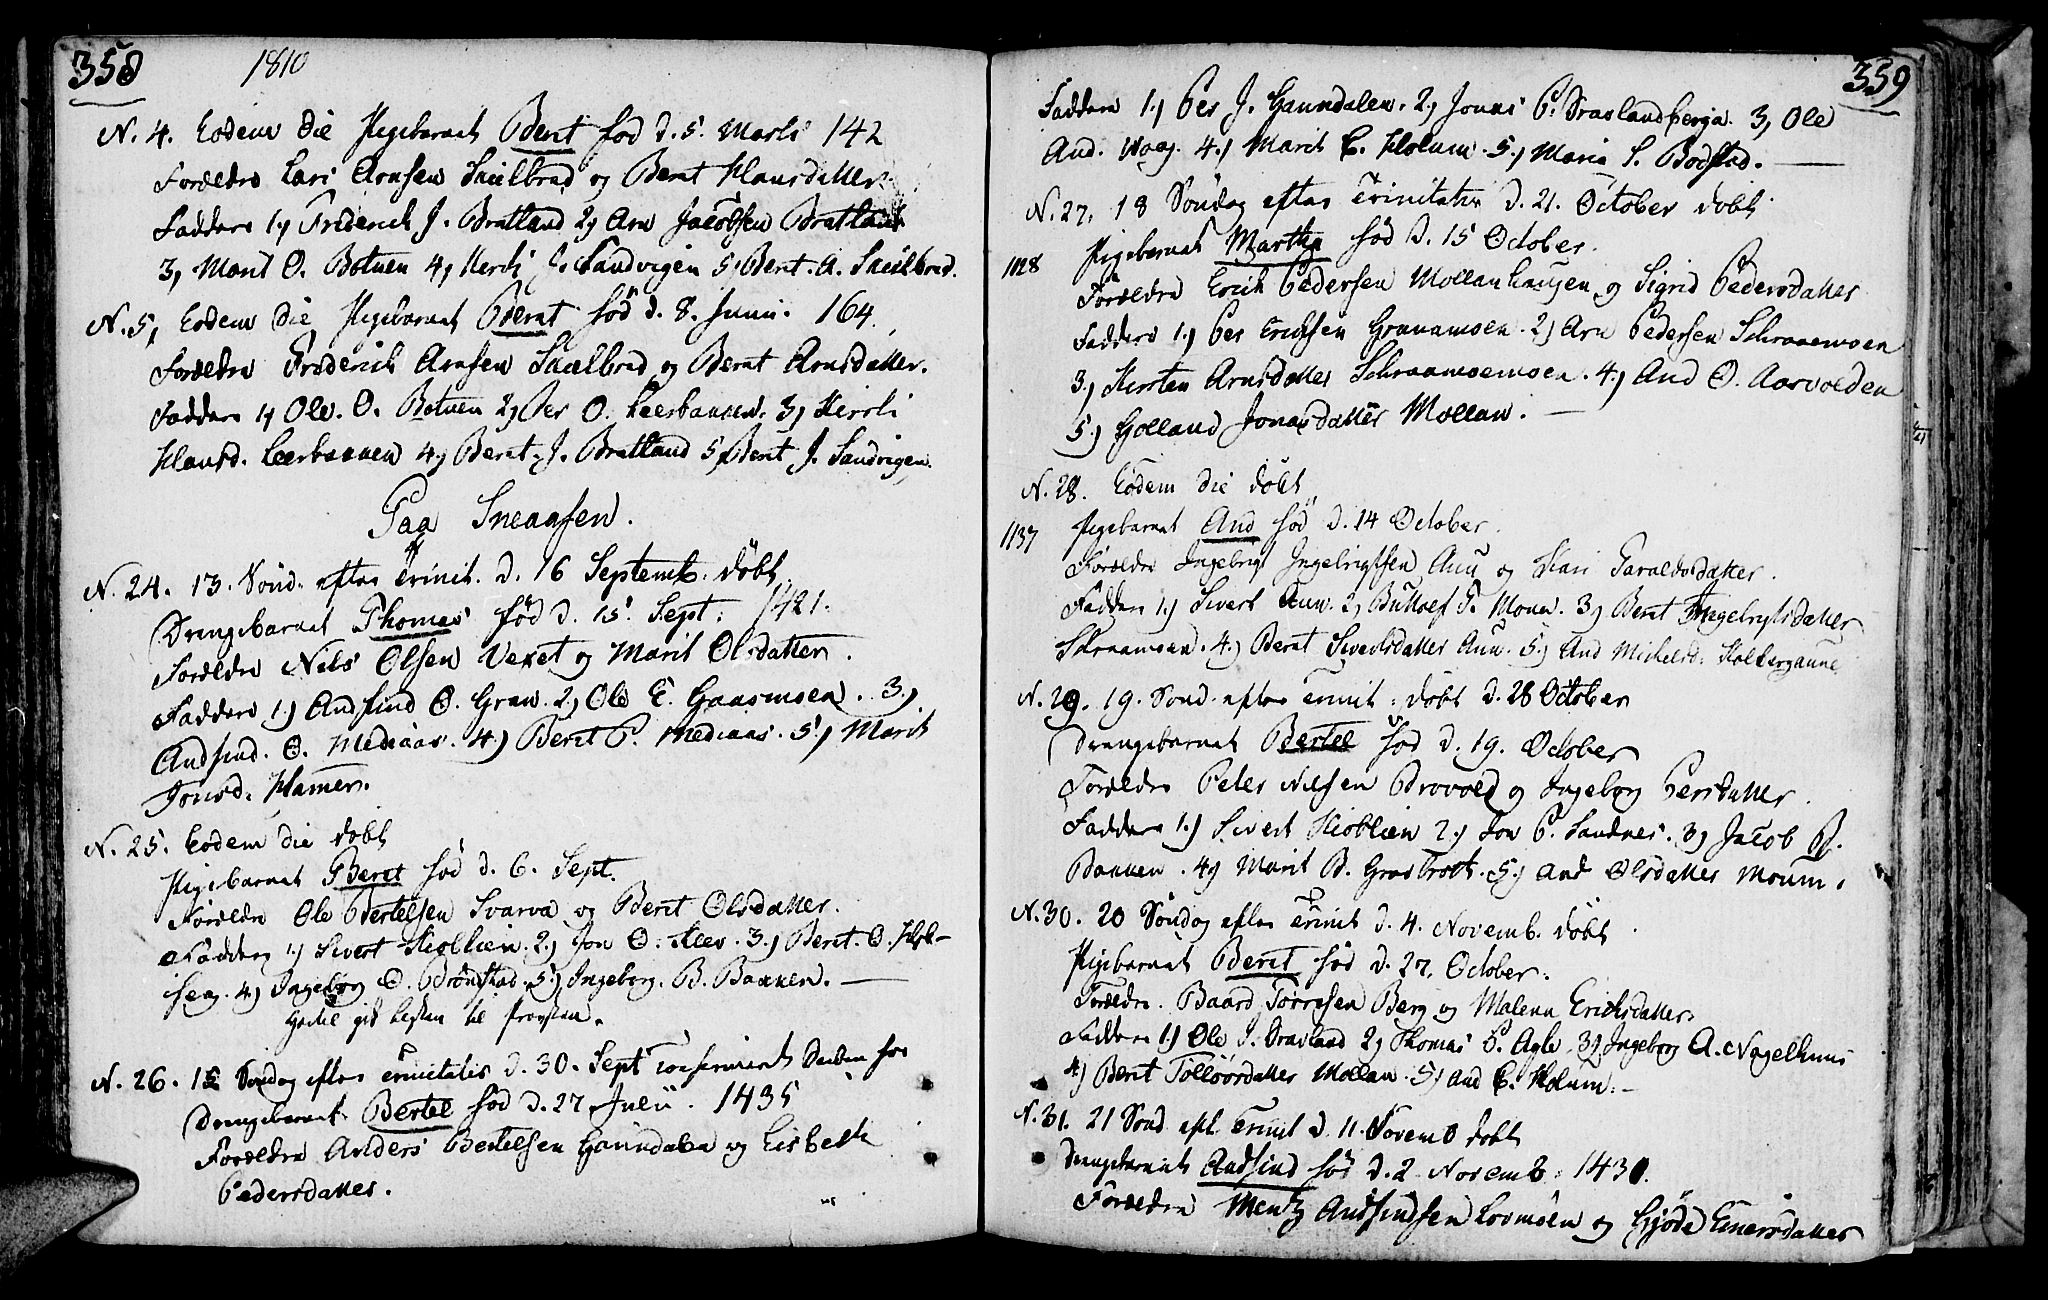 358 1810
N. 4. Eodem Die Pigebarnet Berit fød d. 5. Marts 142
Forældre Lars Arnsen Saelbrod og Berit Hansdatter.
Faddere 1.) Frederich J. Bratland 2) Arn Jacobsen Bratland
3) Marit O. Botnen 4) Kersti J. Sandvigen 5) Berit A. Saelbrod.
N. 5, Eodem Die Pigebarnet Berit fød d. 8. Junii. 164.
Forældre Frederich Arnsen Saelbrod og Berit Arnsdatter.
Faddere 1) Ole. O. Botnen 2) Per O. Leerbakken. 3) Kersti
Hansd. Leerbakken 4) Berit J. Bratland 5) Berit J. Sandvigen.
Paa Sneaasen.
N. 24. 13. Sønd. efter Trinit. d. 16 Septemb. døbt
Drengebarnet Thomas fød d. 15. Sept: 1421.
Forældre Nils Olsen Vexet og Marit Olsdatter.
Faddere 1.) Andfind O. Gran. 2) Ole E. Gaasmoen. 3)
Andfind. O. Mediaas. 4.) Berit P. Mediaas. 5.) Marit
Jonsd. Hamer.
N. 25. Eodem die døbt
Pigebarnet Beret fød d. 6. Sept.
Forældre Ole Bertelsen Svarva og Berit Olsdatter.
Faddere 1.) Sivert Kioblien. 2.) Jon O. Klev. 3.) Berit. O.
4) Ingeborg O. Brønstad. 5) Ingeborg. B. Bakken.
til Provsten.
N. 26. 15 Søndag efter Trinitatis d. 30. Sept confirmert Daaben for
Drengebarnet Bertel fød d. 27 Julii. 1435
Forældre Anders Bertelsen Gaundalen og Lisbeth
Pedersdatter.
359
Faddere 1.) Per J. Gaundalen. 2.) Jonas P. 3) Ole
And. Waag. 4.) Marit E. Holum. 5.) Maria S. Bodstad.
N. 27. 18 Søndag efter Trinitatis d. 21. October døbt
1128 Pigebarnet Martha fød d. 15 October.
Forældre Erich Pedersen Mollanhaugen og Sigrid Pedersdatter
Faddere 1.) Per Erichsen Granamoen. 2) Arn Pedersen Schraaemoen
3) Kersten Arnsdatter Schraamoemoen. 4.) And O. Aarvolden
5.) Golland Jonasdatter Mollan.
N. 28. Eodem die døbt
1137 Pigebarnet And fød d. 14 October.
Forældre Ingebrigt Ingebrigtsen Auu og Kari Taraldsdatter.
Faddere 1.) Sivert Auu. 2) P. Monn. 3) Berit Ingebrigtsdatter
Skraamoen. 4.) Berit Sivertsdatter Auu. 5.) And Michelsd. Holtergaune
N. 29. 19. Sønd. efter Trinit. døbt d. 28 October
Drengebarnet Bertel fød d. 19. October
Forældre Peter Nilsen Brovold og Ingeborg Persdatter.
Faddere 1.) Sivert Kioblien 2.) Jon P. Sandnes. 3) Jacob P.
Bakken. 4) Marit B. Grasbrot. 5.) And Olsdatter Monn.
N. 30. 20 Søndag efter Trinit d. 4. Novemb. døbt
Pigebarnet Beret fød d. 27. October.
Forældre. Baard Torresen Berg og Malena Erichsdatter
Faddere 1.) Ole J. Sraaland 2) Thomas P. Agle. 3) Ingeborg A. Nagelhuus
4) Berit Tolloordatter Mollan. 5.) And E. Holum.
N. 31. 21 Sønd. eft. Trinit d. 11. Novemb døbt
Drengebarnet Andfind fød d. 2. Novemb. 1430.
Forældre Mentz Andfindsen Lovmoen og Gjøde Einersdatter